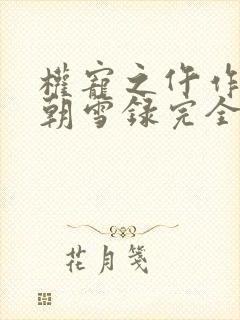 權寵之仵作
朝雪錄完全
花月箋